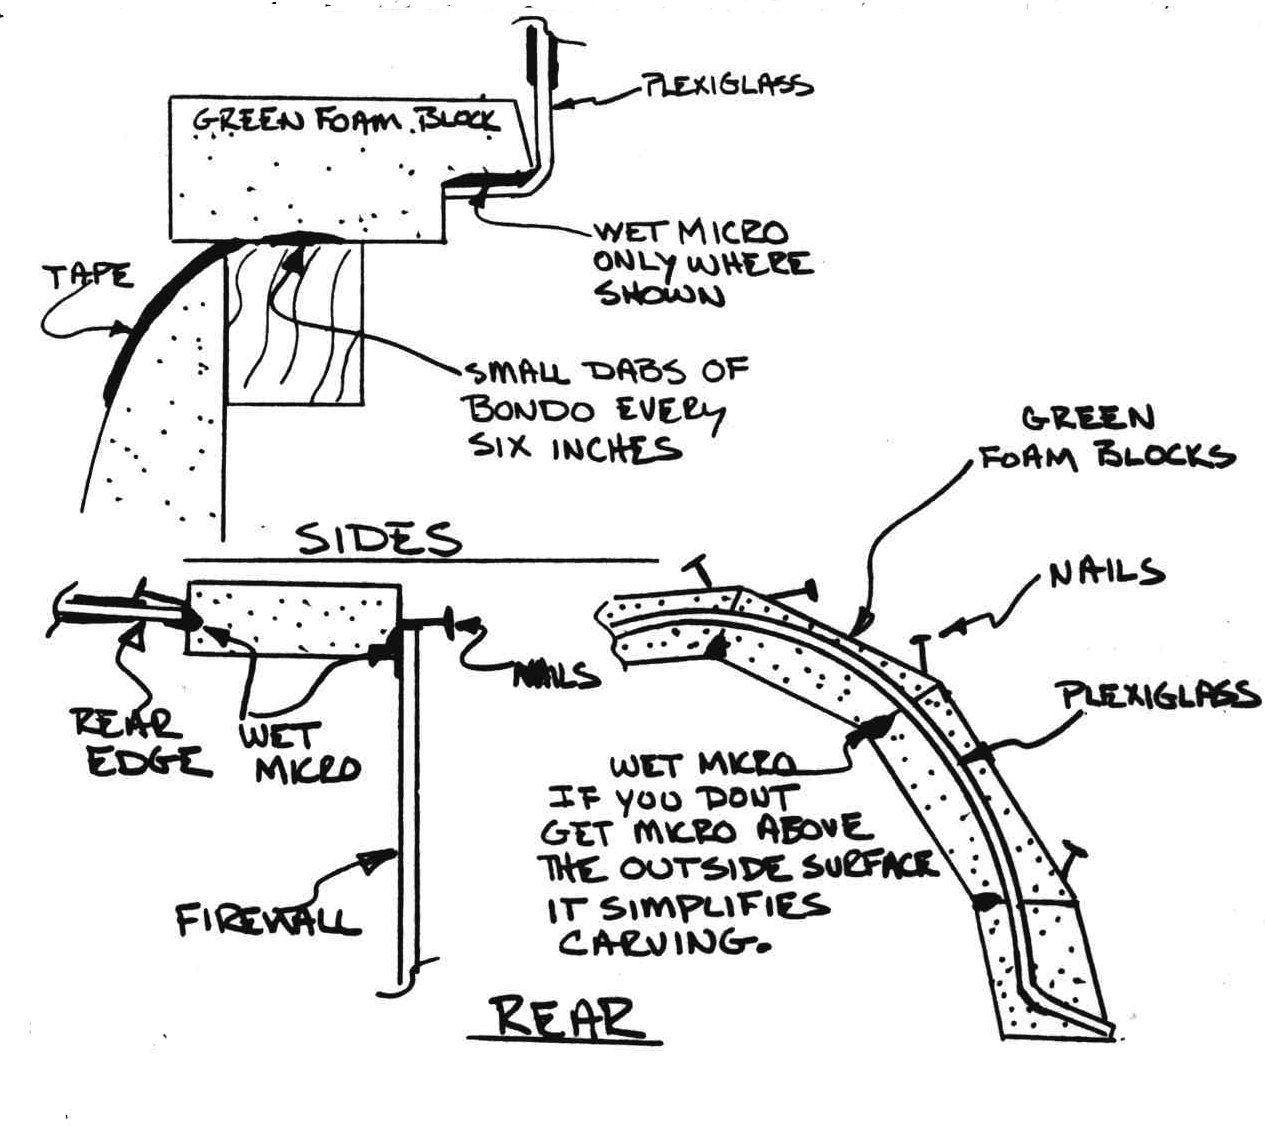 GREEN FOAM. BLOCK
PLEXIGLASS
WET MICRO
ONLY WHERE
SHOWN
TAPE
SMALL DABS OF
BONDO EVERY
SIX INCHES
SIDES
GREEN
FOAM BLOCKS
NAILS
NAILS
PLEXIGLASS
REAR
EDGE
WET
MICRO
FIREWALL
WET MICRO
IF YOU DONT
GET MICRO ABOVE
THE OUTSIDE SURFACE
IT SIMPLIFIES
CARVING.
REAR